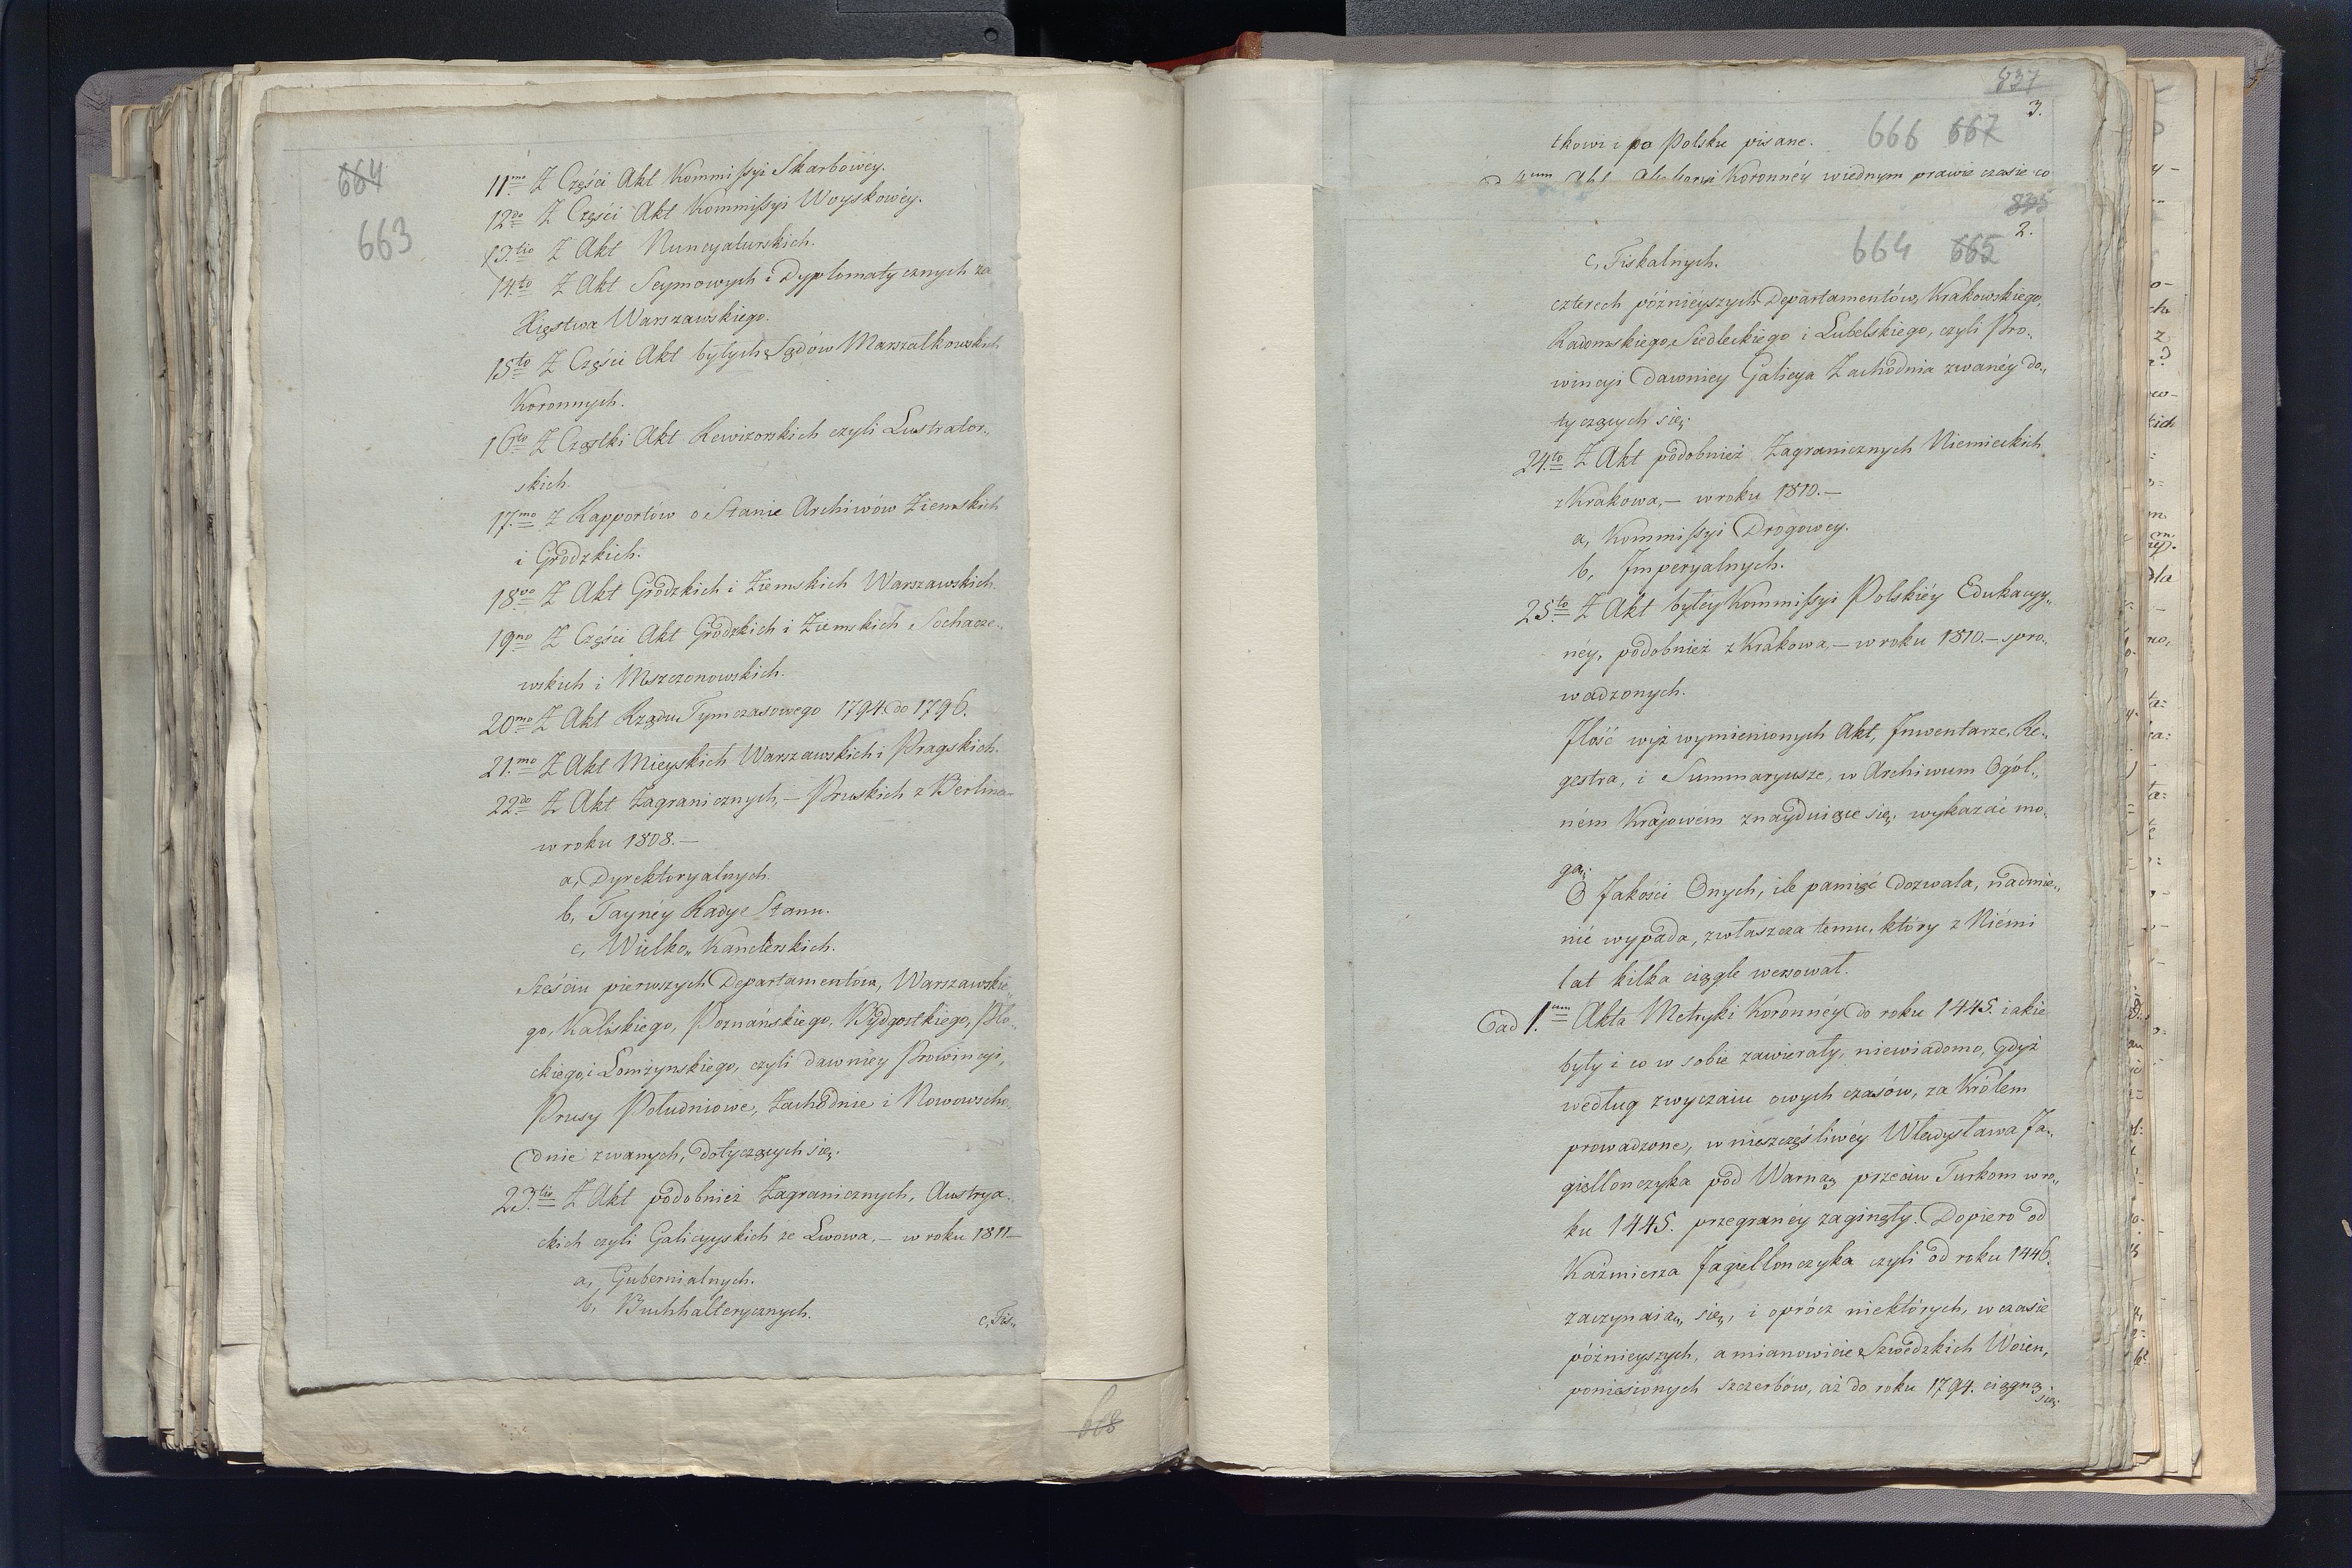 664
663
11.mo Z Części Akt Kommissyi Skarbowéy.
12.do Z Części Akt Kommissyi Woyskowéy.
13.tio Z Akt Nuncyaturskich.
14.to Z Akt Seymowych i Dyplomatycznych za
Xięstwa Warszawskiego.
15.to Z Części Akt byłych Sądów Marszałkowskich
Koronnych.
16.to Z Cząstki Akt Rewizorskich czyli Lustrator„
skich.
17.mo Z Rapportów o Stanie Archiwów Ziemskich
i Grodzkich.
18.vo Z Akt Grodzkich i Ziemskich Warszawskich.
19.no Z Części Akt Grodzkich i Ziemskich Sochacze„
wskich i Mszczonowskich.
20.mo Z Akt Rządu Tymczasowego 1794. do 1796.
21.mo Z Akt Mieyskich Warszawskich i Pragskich.
22.do Z Akt Zagranicznych, — Pruskich z Berlina —
w roku 1808. —
a, Dyrektoryalnych.
b, Taynéy Rady Stanu.
c, Wielko„ Kanclerskich.
Sześciu pierwszych Departamentów, Warszawskie„
go, Kaliskiego, Poznańskiego, Bydgostkiego, Pło„
ckiego, i Łomżynskiego, czyli dawniéy Prowincyi,
Prusy Południowe, Zachodnie i Nowowscho„
dnie zwanych, dotyczących się.
23.tio Z Akt podobnież Zagranicznych, Austrya„
ckich czyli Galicyyskich ze Lwowa, — w roku 1811 —
a, Gubernialnych.
b, Buchhalterycznych.
c, Fis„
668
837
3.
666 667
tkowi i po Polsku pisane.
Koronnéy wiednym prawie czasie co
835
2.
664 665
c, Fiskalnych.
czterech późnieyszych Departamentów, Krakowskiego,
Radomskiego, Siedleckiego i Lubelskiego, czyli Pro„
wincyi dawniey Galicya Zachodnia zwanéy do„
tyczących się.
24.to Z Akt podobnież Zagranicznych Niemieckich
z Krakowa, — w roku 1810. —
a, Kommissyi Drogowey.
b, Imperyalnych.
25.to Z Akt byłey Kommissyi Polskiéy Edukacyy„
néy, podobnież z Krakowa, — w roku 1810. — spro„
wadzonych.
Ilość wyż wymienionych Akt, Inwentarze, Re„
gestra, i Summaryusze, w Archiwum Ogól„
ném Krajowém znayduiące się, wykazać mo„
gą.
O Jakości Onych, ile pamięć dozwala, nadmie„
nić wypada, zwłaszcza temu, który z Niémi
lat kilka ciągle wersował.
Ad 1.um Akta Metryki Koronnéy do roku 1445. iakie
były i co w sobie zawierały, niewiadomo, gdyż
według zwyczaiu owych czasów, za Królem
prowadzone, w nieszczęśliwéy Władysława Ja„
giellonczyka pod Warną przeciw Turkom w ro„
ku 1445. przegranéy zaginęły. Dopiero od
Kaźmierza Jagiellonczyka czyli od roku 1446.
zaczynaią się, i oprócz niektórych, w czasie
późnieyszych, a mianowicie Szwedzkich Woien,
poniesionych szczerbów, aż do roku 1794. ciągną
się.